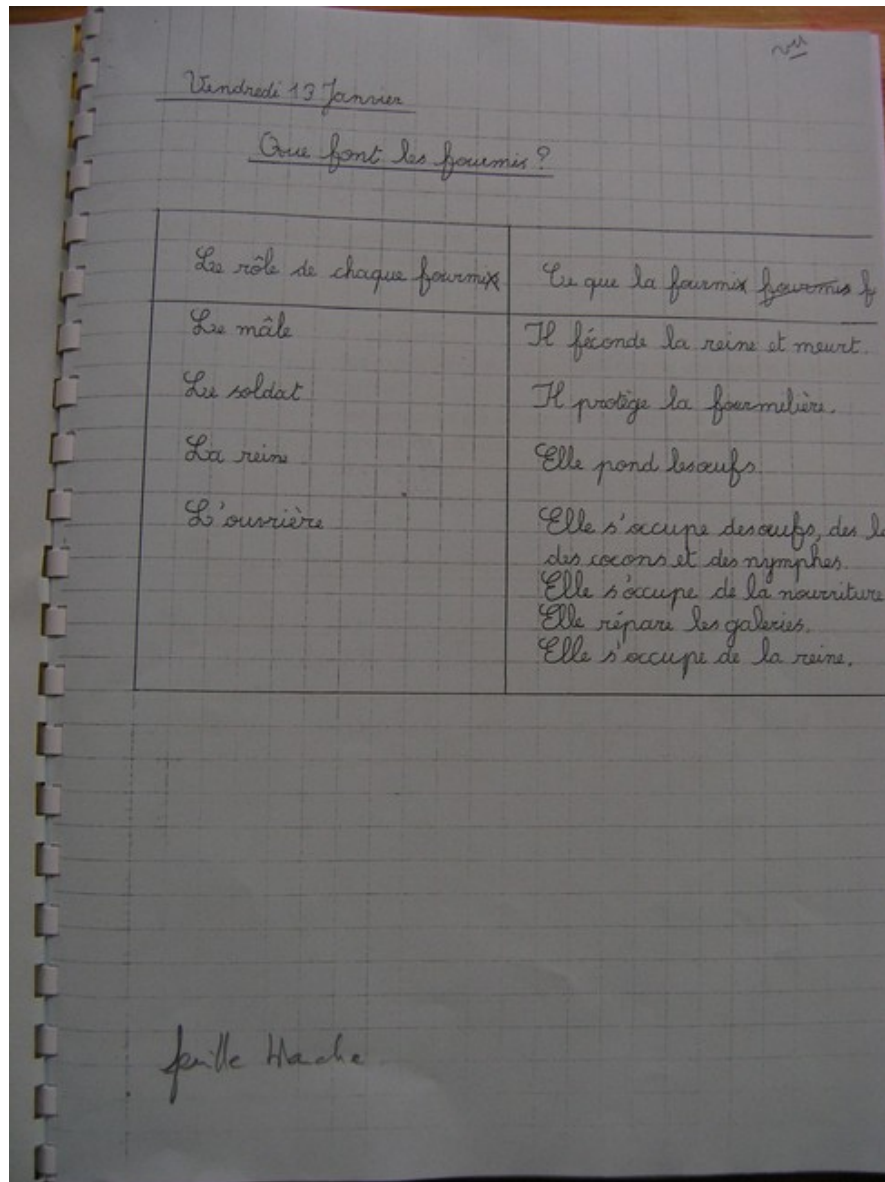 vu
Vendredi 13 Janvier
Que font les fourmis ?
Le rôle de chaque fourmix
Ce que la fourmix fourmis f
Le mâle
Il féconde la reine et meurt.
Le soldat
Il protège la fourmilière.
La reine
Elle pond lesœufs.
L'ouvrière
Elle s'occupe desœufs, des la
des cocons et des nymphes.
Elle s'occupe de la nourriture
Elle répare les galeries.
Elle s'occupe de la reine.
feuille blanche